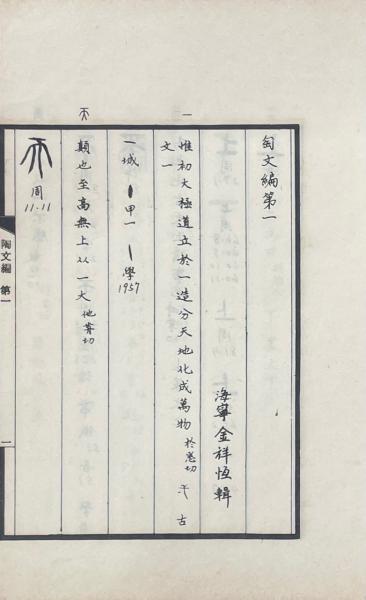 匋文編第一
海寧金祥恆輯
一
惟初大極道立於一造分天地化成萬物 於悉切 弌 古
文一
一城 甲一 學1957
天
顛也至高無上从一大 他前切
周11.11
陶文編 第一
一